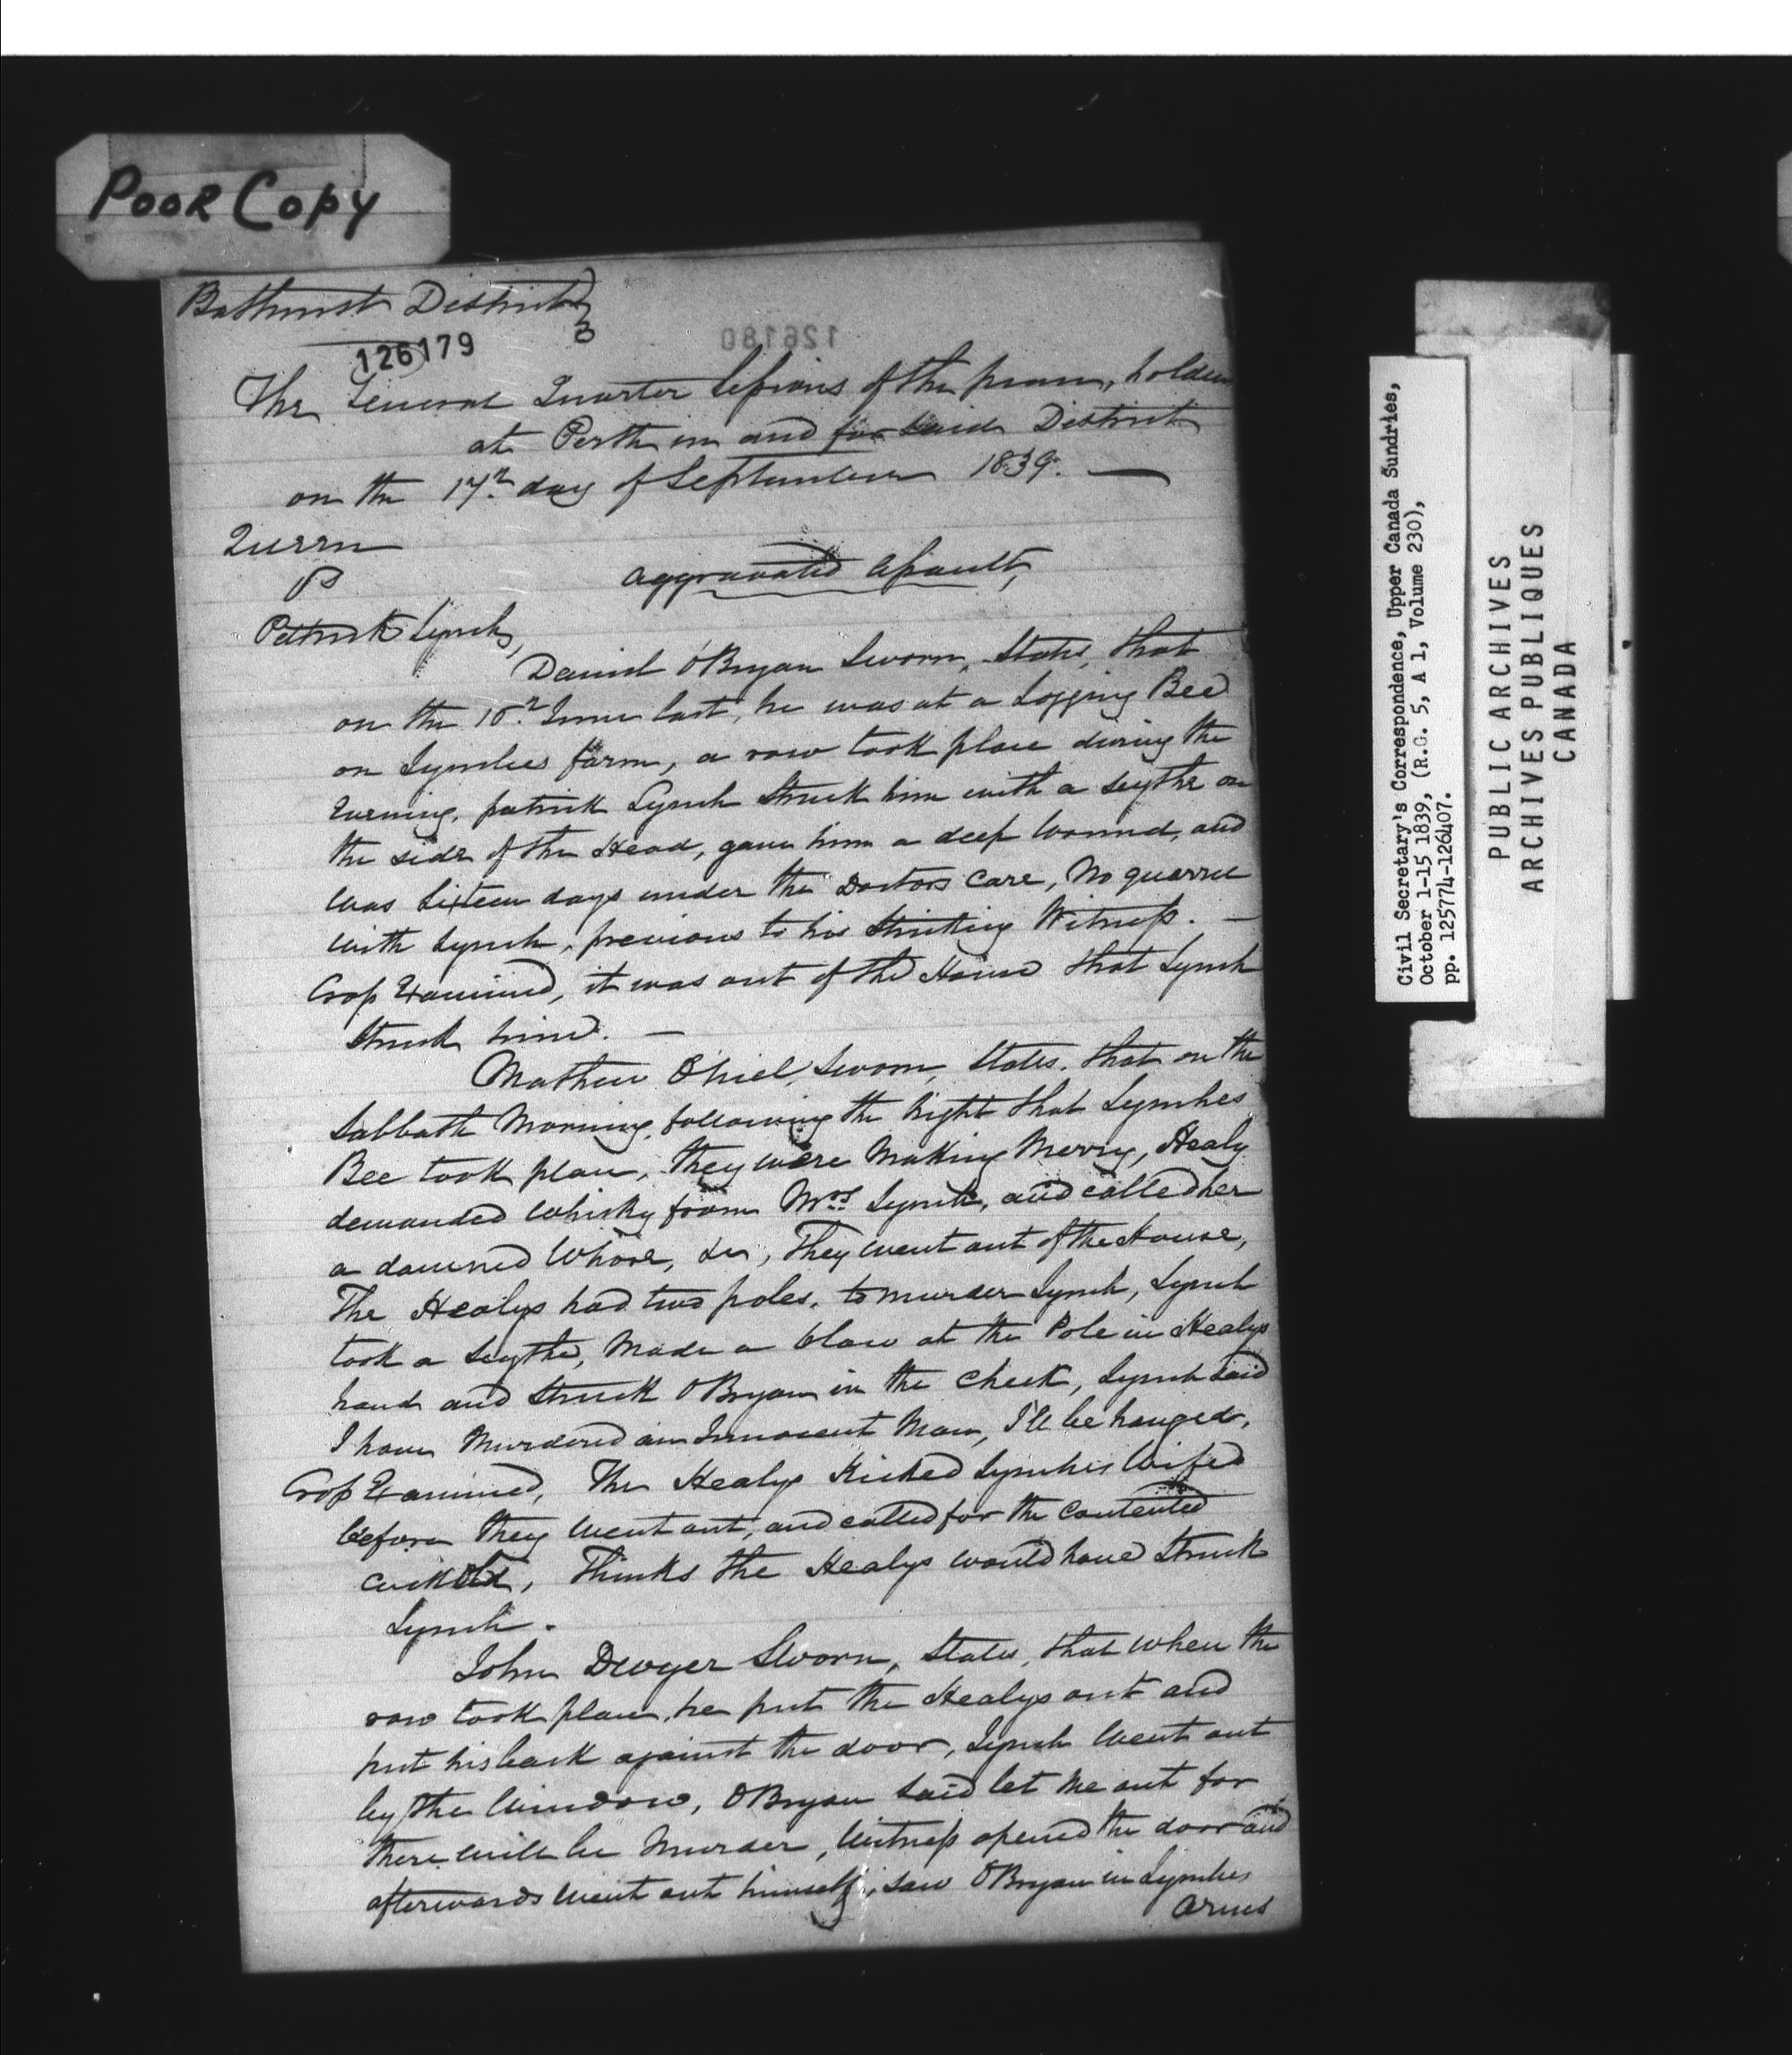 POOR COPY
Bathurst District
126179
126180
The General Quarter Sessions of the peace, holden
at Perth in and for said District
on the 17th day of September 1839. —
Queen
vs
Patrick Lynch,
aggravated assault,
Daniel OBryan Sworn, States, that
on the June last, he was at a Logging Bee
on Lynches farm, a row took place during the
Evening, patrick Lynch Struck him with a scythe on
the side of the Head, gave him a deep Wound, and
was Sixteen days under the Doctors Care, No quarrel
with Lynch, previous to his Striking Witness. —
Cross Examined, it was out of the House that Lynch
Struck him. —
Mathew Sworn, States. that on the
Sabbath Morning, following the Night that Lynches
Bee took place, they were Making Merry, Healy
demanded Whisky from Mrs Lynch, and called her
a damned Whore, &c, They went out of the House,
The Healys had two poles, to murder Lynch, Lynch
took a Scythe, Made a blow at the Pole in Healys
hand and Struck OBryan in the Cheek, Lynch said
I have Murdered an Innocent Man, I'll be hanged,
Cross Examined, The Healys Kicked Lynches Wife
before they went out, and called for the Contented
, Thinks the Healys would have Struck
Lynch.
John Dwyer Sworn, States, that when the
row took place, he put the Healys out and
put his back against the door, Lynch Went out
by the Window, OBryan Said let me out for
there will be Murder, Witness opened the door and
afterwards went out himself, saw OBryan in Lynches
Arms
Civil Secretary's Correspondence, Upper Canada Sundries,
October 1-15 1839, (R.G. 5, A 1, Volume 230),
pp. 125774-126407.
PUBLIC ARCHIVES
ARCHIVES PUBLIQUES
CANADA